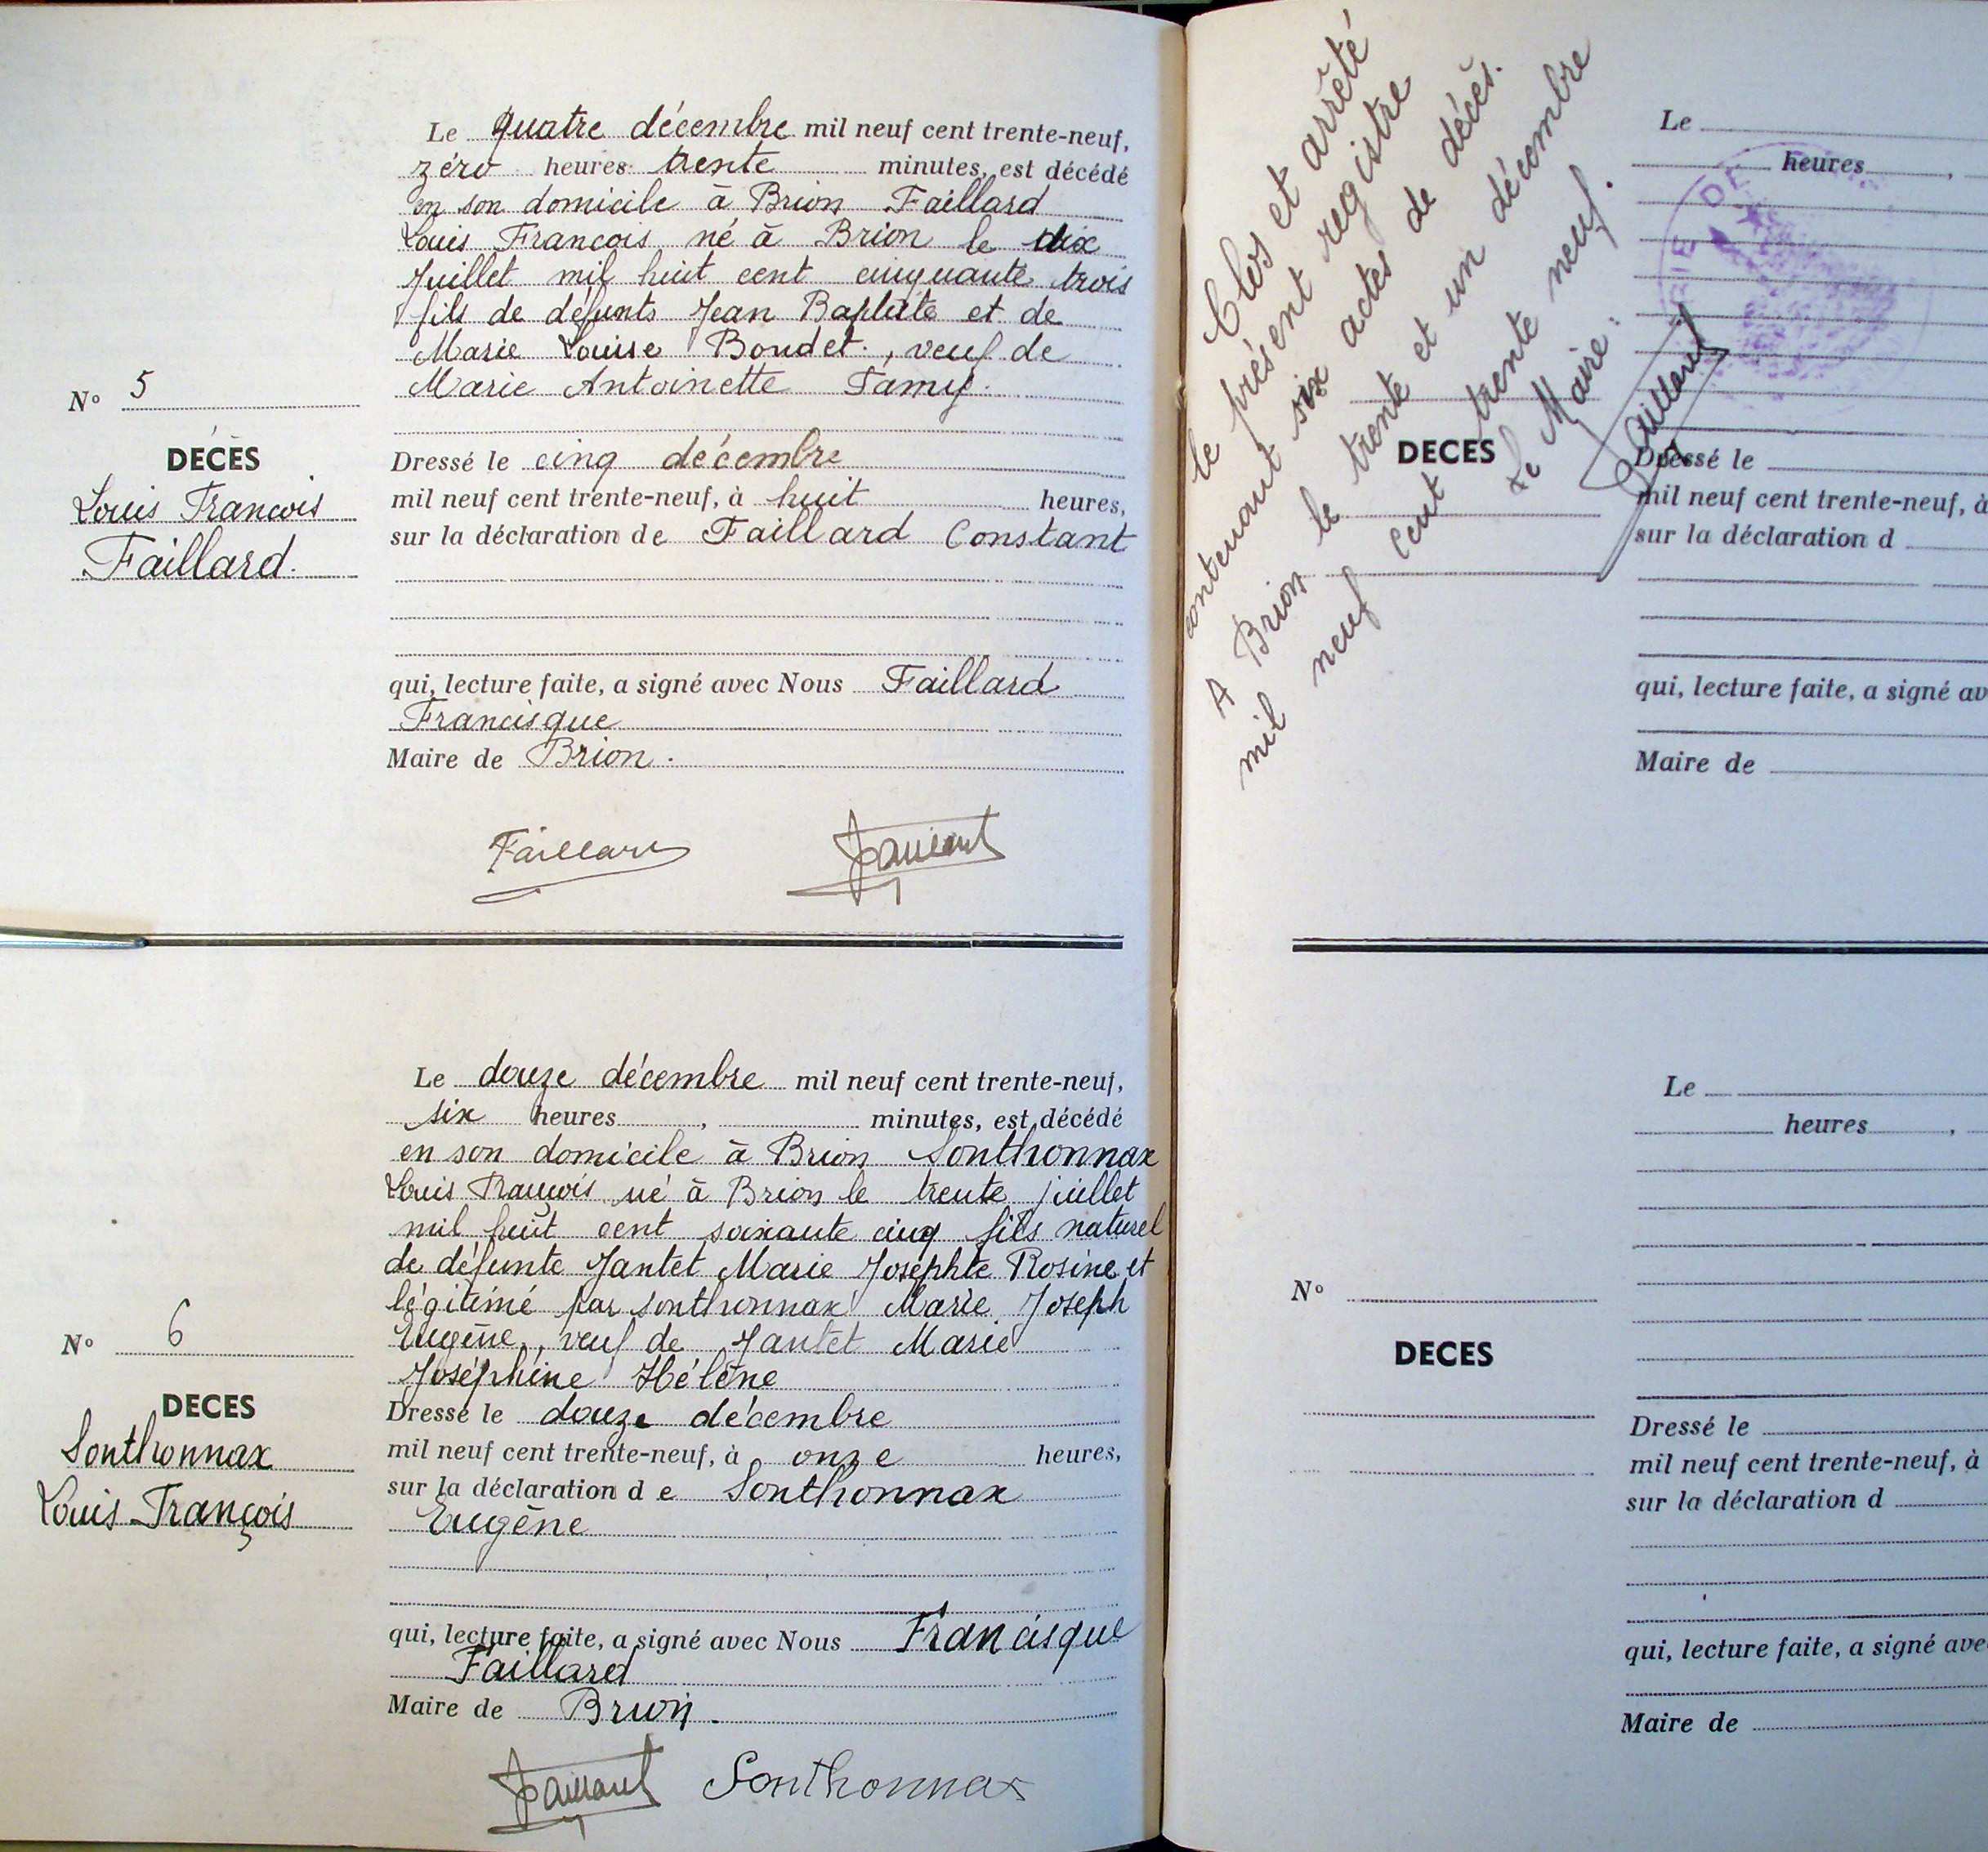 Le quatre décembre mil neuf cent trente-neuf,
zéro heures trente minutes, est décédé
en son domicile à Brion Faillard
Louis Francois né à Brion le dix
Juillet mil huit cent cinquante trois
fils de défunts Jean Baptiste et de
Marie Louise Boudet, veuf de
Marie Antoinette Tamy.
N° 5
DÉCÈS
Louis Francois
Faillard.
Dressé le cinq décembre
mil neuf cent trente-neuf, à huit heures,
sur la déclaration de Faillard Constant
qui, lecture faite, a signé avec Nous Faillard
Francisque
Maire de Brion.
Faillard Faillard
Le douze décembre mil neuf cent trente-neuf,
six heures, minutes, est décédé
en son domicile à Brion Sonthonnax
Louis François né à Brion le trente juillet
mil huit cent soixante cinq fils naturel
de défunte Jantet Marie Josephte Rosine et
légitimé par Sonthonnax Marie Joseph
Eugène, veuf de Jantet Marie
Joséphine Hélène
N° 6
DECES
Sonthonnax
Louis François
Dressé le douze décembre
mil neuf cent trente-neuf, à onze heures,
sur la déclaration de Sonthonnax
Eugène
qui, lecture faite, a signé avec Nous Francisque
Faillard
Maire de Brion.
Faillard Sonthonnax
Clos et arrêté
le présent registre
contenant six actes de décès.
A Brion le trente et un décembre
mil neuf cent trente neuf.
Le Maire:
Faillard
Le
heures,
DECES
Dressé le
mil neuf cent trente-neuf, à
sur la déclaration d
qui, lecture faite, a signé av
Maire de
Le
heures,
N°
DECES
Dressé le
mil neuf cent trente-neuf, à
sur la déclaration d
qui, lecture faite, a signé ave
Maire de